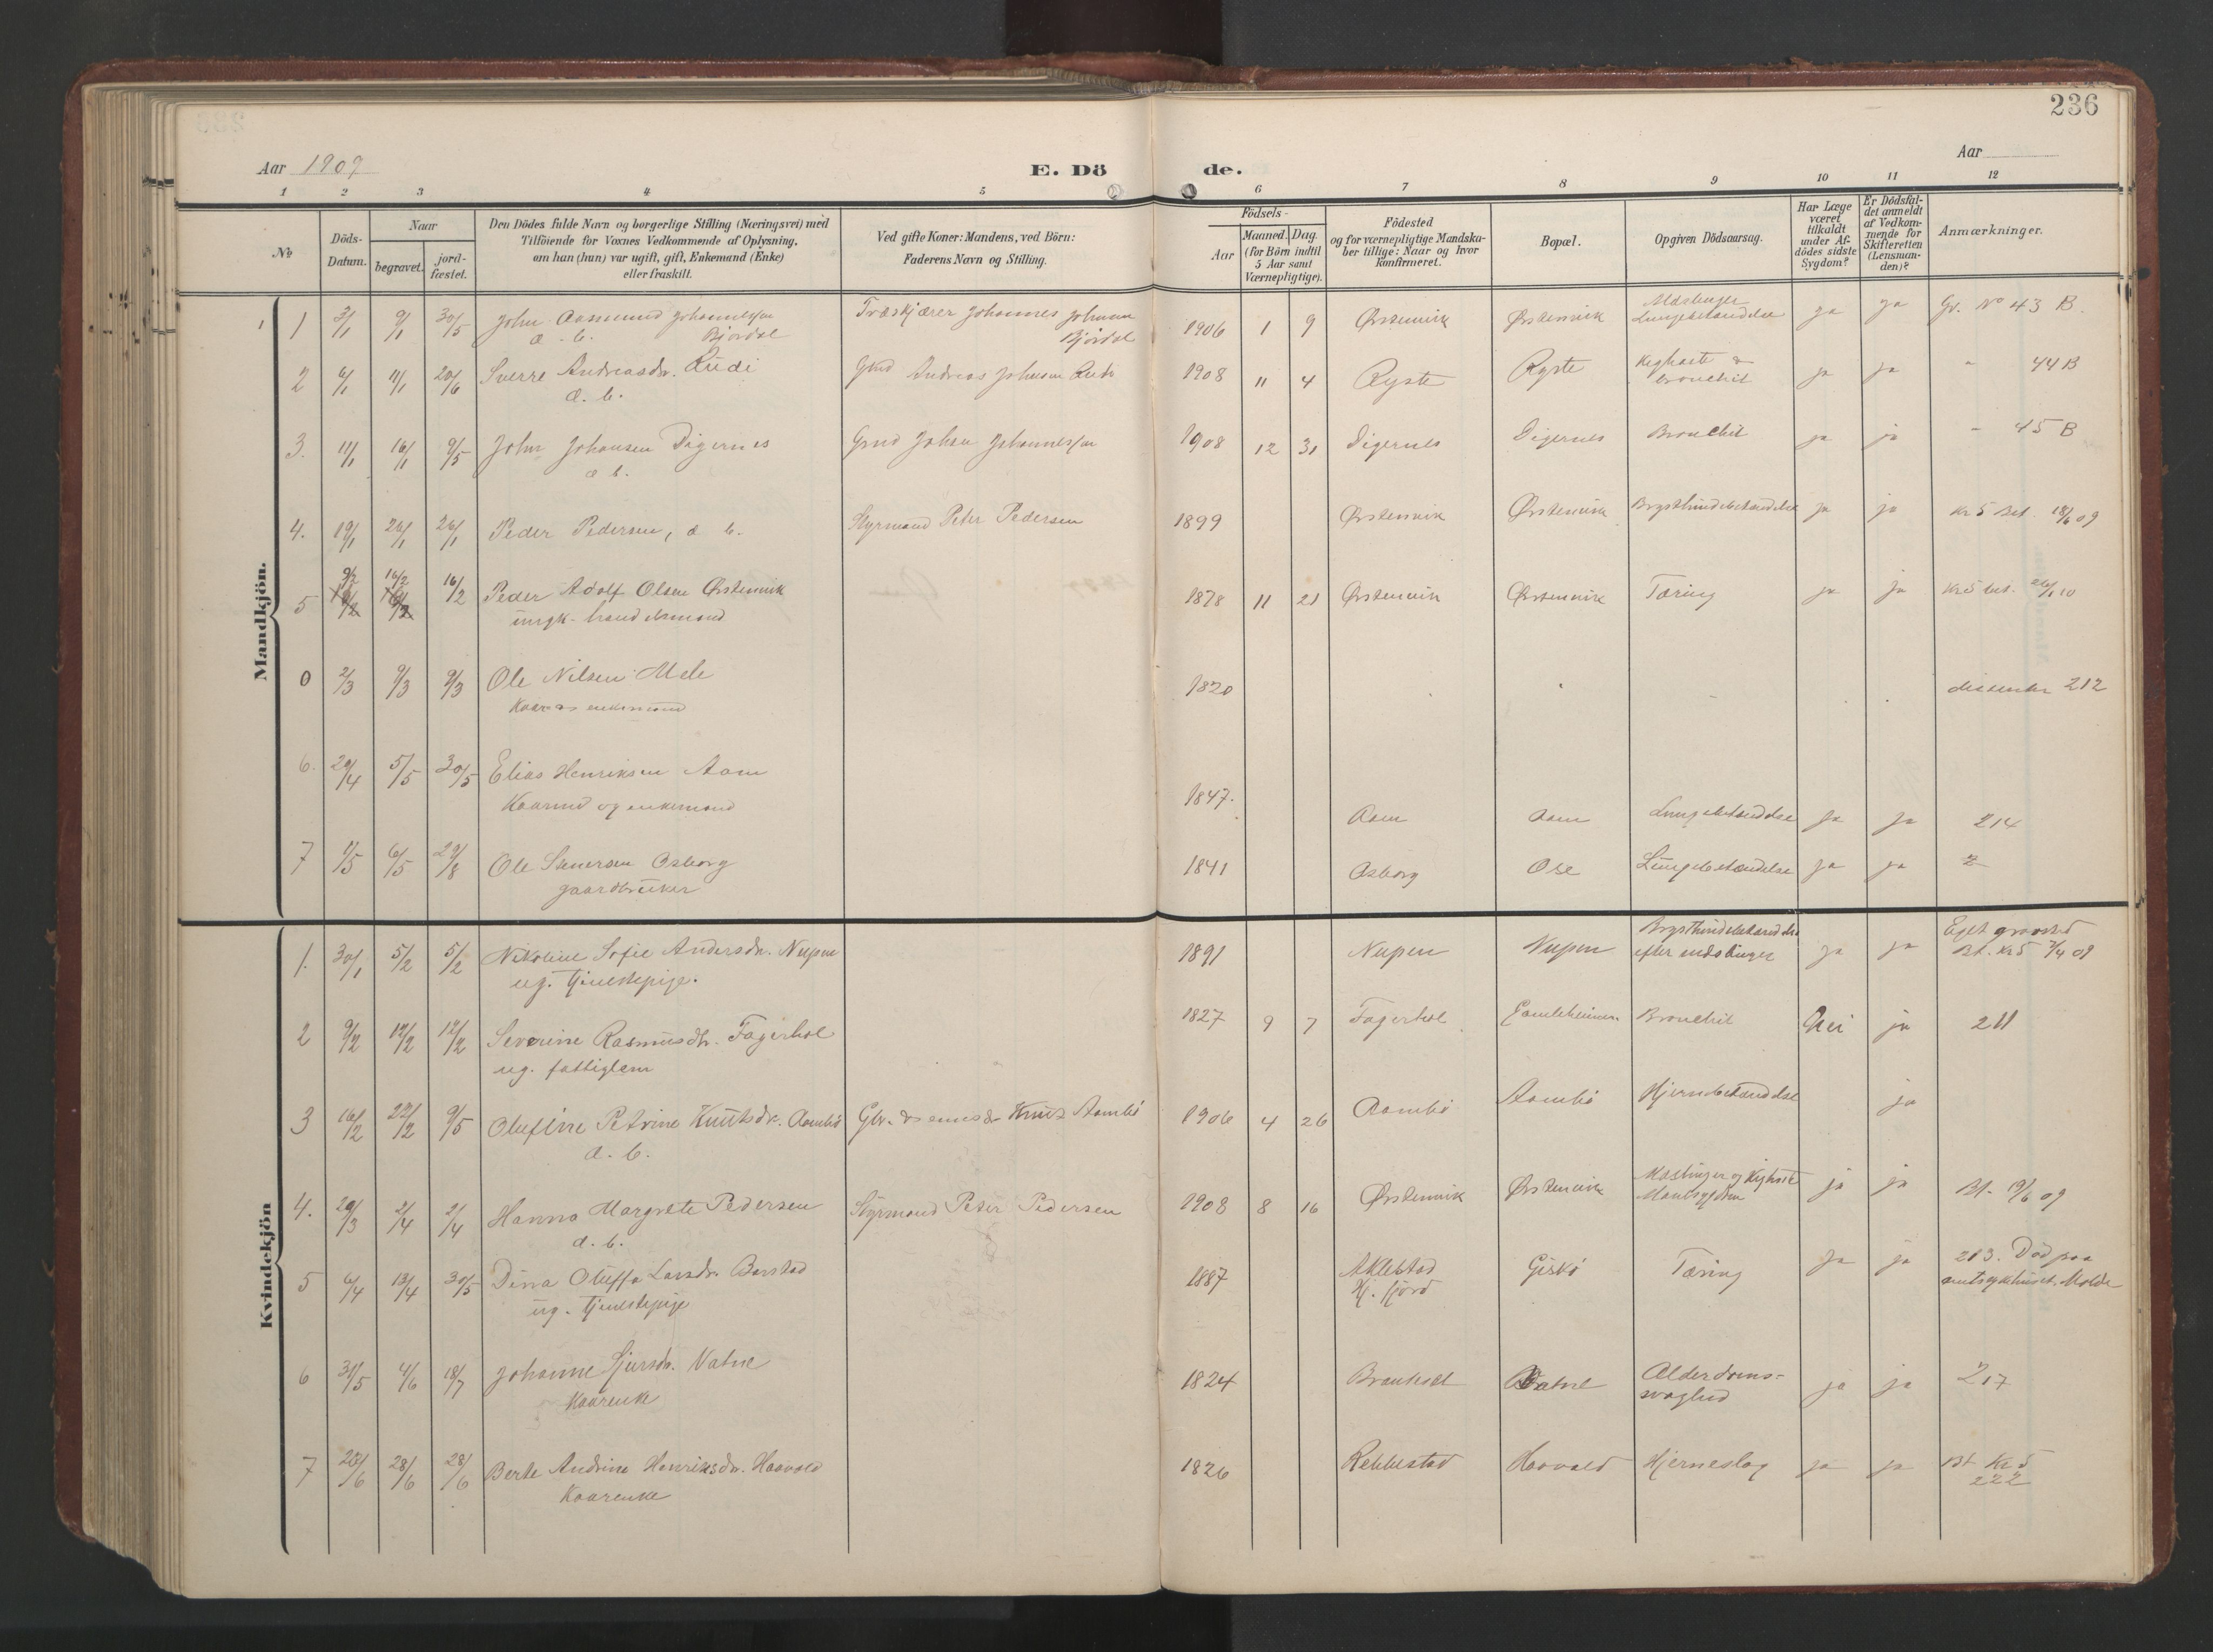 236
Aar 1909
E. Dö de.
Aar
1 2 3 4 5 6 7 8 9 10 11 12
№
Döds-Datum.
Naar
begravet.
jord-fæstet.
Den Dödes fulde Navn og borgerlige Stilling (Næringsvei) med
Tilföiende for Voxnes Vedkommende af Oplysning,
om han (hun) var ugift, gift, Enkemand (Enke)
eller fraskilt.
Ved gifte Koner: Mandens, ved Börn:
Faderens Navn og Stilling.
Födsels-
Aar
Maaned. Dag.
(for Börn indtil
5 Aar samt
Værnepligtige).
Födested
og for værnepligtige Mandska-
ber tillige: Naar og hvor
konfirmeret.
Bopæl.
Opgiven Dödsaarsag.
Har Læge
været
tilkaldt
under Af-
dödes sidste
Sygdom?
Er Dödsfal-
det anmeldt
af Vedkom-
mende for
Skifteretten
(Lensman-
den)?
Anmærkninger.
Mandkjön.
1 3/1 9/1 30/5 John Aasmund Johannessen Træskjærer Johannes Johnsen 1906 1 9 Ørstenvik Ørstenvik Mæslinger ja ja Gr. No 43 B.
d. b. Bjørdal Bjørdal Lungebetændelse
2 6/1 11/1 20/6 Sverre Andreasdr. Rudi Gmd Andreas Johnsen 1908 11 4 Ryste Ryste Kighoste & ja ja " 44 B
d. b. bronchit
3. 11/1 16/1 9/5 John Johansen Digernes Gmd Johan Johannessen 1908 12 31 Digernes Digernes Bronchit ja ja " 45 B
d. b.
4. 19/1 26/1 26/1 Peder Pedersen, d. b. Styrmand Peter Pedersen 1899 Ørstenvik Ørstenvik Brysthindebetændelse ja ja Kr 5 Bet. 18/6 09
5 9/2 16/2 16/2 Peder Adolf Olsen Ørstenvik 1878 11 21 Ørstenvik Ørstenvik Tæring ja ja Kr 5 bet. 10
ungk. handelsmand
0 2/3 9/3 9/3 Ole Nilsen Mele 1820 dissenter 212
enkemand
6. 29/4 5/5 30/5 Elias Henriksen Aam 1847. Aam Aam Lungebetændelse ja ja 214
Kaarmd og enkemand
7 1/5 6/5 29/8 Ole Osborg 1841 Osborg Ose Lungebetændelse ja ja 2
gaardbruker
Kvindekjön
1. 30/1 5/2 5/2 Nikoline Sofie Andersdr. Nupen 1891 Nupen Nupen Brysthindebetændelse ja ja Eget gravsted
ug. tjenestepige. efter mæslinger Bt. Kr 5 09
2 9/2 17/2 17/2 Severine Rasmusdtr. Fagerhol 1827 9 7 Fagerhol Gamleheimen. Bronchit Nei ja 211
ug. fattiglem
3 16/2 27/2 9/5 Olufine Petrine Knutsdr. Aambø Knut Aambø 1906 4 26 Aambø Aambø Hjernebetændelse ja
d. b.
4. 29/3 2/4 2/4 Hanna Margrete Pedersen Styrmand Peter Pedersen 1908 8 16 Ørstenvik Ørstenvik Mæslinger og Kighoste ja ja Bt. 19/6 09
d. b.
5 6/4 13/4 30/5 Dina Oluffa Larsdr. Barstad 1887 Aklestad Giskø Tæring ja ja 213. Död paa
ug. tjenestepige Hj. fjord amtsygehuset. Molde
6 31/5 4/6 18/7 Johanne Sjursdr. Vatne 1824 Vatne Alderdoms- ja ja 217
Kaarenke svaghed
7 28/6 28/6 Berte Andrine Henriksdr. Haavold 1826 Rebbestad Haavold Hjerneslag ja ja Bt Kr 5
Kaarenke 222